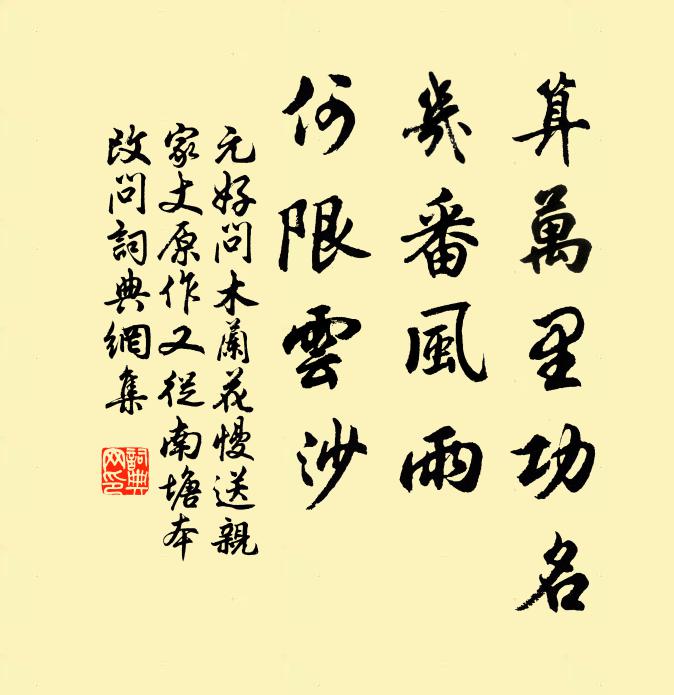 算萬里功名
幾番風雨
何限雲沙
元好問木蘭花慢送親
家丈原作又從南塘本
改問詞典網集
詞典網印